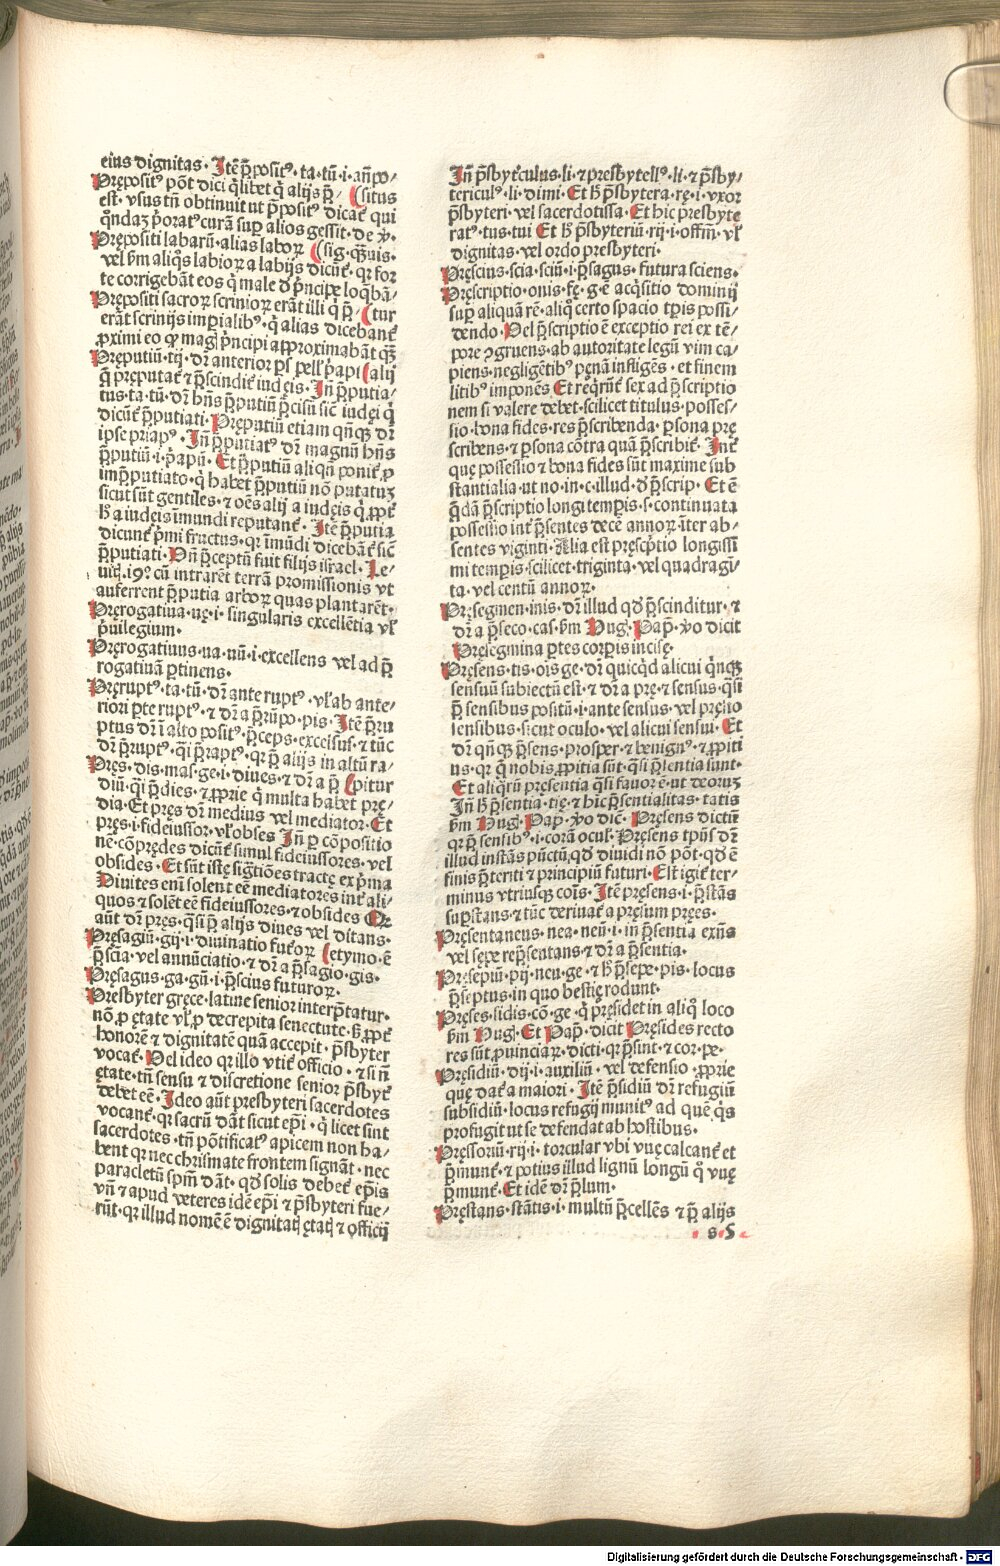 eius dignitas. Itē p̄positꝰ. ta. tū. i. an̄po-
Prępositꝰ pōt dici q̄libet q̄ alijs p̄- (situs
est. vsus tn̄ obtinuit ut p̄positꝰ dicat̄ qui
q̊ndaz p̄oratꝰ curā suꝑ alios gessit. de ꝟ.
Prępositi labarū. alias laboꝝ (sig. q̄uis.
vel ẜm aliq̊s labioꝝ a labijs dicūt̄. qꝛ for
te corrigebāt eos q̄ male d̓ p̄ncipe loq̄bā/
Prępositi sacroꝝ scrinioꝝ erāt illi q̄ p̄- (tur
erāt scrinijs imꝑialibꝰ. q̄ alias dicebant̄
ꝓximi eo ꝙ magꝭ p̄ncipi aꝓproximabāt q̄ꝫ
Pręputiū. tij. dr̄ anterior ꝑs pellꝭ p̄api (alij
q̄ pręputat̄ ⁊ p̄scindit̄ iudęis. In̄ p̄putia-
tus. ta. tū. dr̄ hn̄s p̄putiū p̄cisū sic̄ iudęi q̄
dicūt̄ p̄putiati. Pręputiū etiam qn̄qꝫ dr̄
ipse priapꝰ. In̄ p̄putiatꝰ dr̄ magnū hn̄s
p̄putiū. i. p̄apū. Et p̄putiū aliqn̄ ponit̄ ꝓ
imp̄putiato. q̄ habet p̄putiū nō putatuꝫ
sicut sūt gentiles. ⁊ oēs alij a iudęis q̄ ꝓpt̄
ħ a iudęis īmundi reputant̄. Itē p̄putia
dicunt̄ p̄mi fructus. qꝛ īmūdi dicebāt̄ sic̄
p̄putiati. Vn̄ p̄ceptū fuit filijs israel. Le-
uiꝭ. 19º. cū intrarēt terrā promissionis vt
auferrent p̄putia arboꝝ quas plantarēt.
Pręrogatiua. uę. i. singularis excellētia vł
p̄uilegium.
Pręrogatiuus. ua. uū. i. excellens vel ad p̄
rogatiuā ꝑtinens.
Pręruptꝰ. ta. tū. dr̄ ante ruptꝰ. vł ab ante-
riori ꝑte ruptꝰ. ⁊ dr̄ a p̄rūpo. pis. Itē p̄ru
ptus dr̄ ī alto positꝰ. p̄ceps. excelsus. ⁊ tūc
dr̄ p̄ruptꝰ. q̄i p̄raptꝰ. qꝛ p̄ alijs in altū ra-
Pręs. dis. mas. ge. i. diues. ⁊ dr̄ a p̄ (pitur
diū. q̄i p̄dies. ⁊ ꝓprie q̄ multa habet prę/
dia. Et pręs dr̄ medius vel mediator. Et
pręs. i. fideiussor. vł obses In̄ ꝑ cōpositio
nē. cōprędes dicūt̄ simul fideiussores. vel
obsides. Et sūt istę sig̃tiōes tractę ex p̄ma
Diuites eni solent eē mediatores int̄ ali-
quos ⁊ solēt eē fideiussores. ⁊ obsides Qꝛ
aūt dr̄ pręs. q̄si p̄ alijs diues vel ditans.
Pręsagiū. gij. i. diuinatio fut̄oꝝ (etymo. ē
p̄scia. vel annūciatio. ⁊ dr̄ a p̄sagio. gis.
Pręsagus. ga. gū. i. p̄scius futuroꝝ.
Presbyter gręce. latine senior interp̄tatur.
nō. ꝓ ętate vł. ꝓ decrepita senectute. ẜꝫ ꝓpt̄
honorē ⁊ dignitatē quā accepit. p̄sbyter
vocat̄. Vel ideo qꝛ illo vtit̄ officio. ⁊ si n̄
ętate. tn̄ sensu ⁊ discretione senior p̄sbyt̄
debet eē. Ideo aūt presbyteri sacerdotes
vocant̄. qꝛ sacrū dāt sicut ep̄i. q̄ licet sint
sacerdotes. tn̄ pōtificatꝰ apicem non ha-
bent qꝛ nec chrismate frontem signāt. nec
paracletū spm̄ dāt. qd̓ solis debet̄ ep̄is
vn̄ ⁊ apud veteres idē ep̄i ⁊ p̄sbyteri fue-
rūt. qꝛ illud nomē ē dignitatꝭ ętatꝭ ⁊ officij
In̄ p̄sbytc̄ulus. li. ⁊ presbytellꝰ. li. ⁊ p̄sby-
tericulꝰ. li. dimi. Et ħ p̄sbytera. rę. i. vxor
p̄sbyteri. vel sacerdotissa. Et hic presbyte
ratꝰ. tus. tui Et ħ p̄sbyteriū. rij. i. offm̄. vł
dignitas. vel ordo presbyteri.
Pręscius. scia. sciū. i. p̄sagus. futura sciens.
Pręscriptio. onis. fę. g. ē acq̄sitio dominij
suꝑ aliquā rē. aliq̊ certo spacio tꝑis possi/
dendo. Vel p̄scriptio ē exceptio rei ex tē/
pore ꝯgruens. ab autoritate legū vim ca/
piens. negligētibꝰ pęnā infligēs. et finem
litibꝰ imponēs Et reqr̄ūt̄ sex ad p̄scriptio
nem si valere debet. scilicet titulus. posses/
sio. bona fides. res p̄scribenda. ꝑsona prę
scribens. ⁊ ꝑsona cōtra quā p̄scribit̄. Int̄
quę possessio ⁊ bona fides sūt maxime sub
stantialia. ut no. in. c. illud. d̓ p̄scrip. Et ē
q̄dā p̄scriptio longi temꝑis. s. continuata
possessio int̄ p̄sentes decē annoꝝ. īter ab-
sentes viginti. Alia est pręscp̄tio longissi
mi temꝑis. scilicet. triginta. vel quadragī
ta. vel centū annoꝝ.
Pręsegmen. inis. dr̄ illud qd̓ p̄scinditur. ⁊
dr̄ a p̄seco. cas. ẜm Hugꝭ. Pap̄. ꝟo dicit
Pręsegmina ꝑtes corꝑis incisę.
Pręsens. tis. oīs ge. dr̄ quicqd̓ alicui qn̄qꝫ
sensuū subiectū est. ⁊ dr̄ a prę ⁊ sensus. q̄si
p̄ sensibus positū. i. ante sensus. vel pręsto
sensibus. sicut oculo. vel alicui sensui. Et
dr̄ qn̄qꝫ p̄sens. prosper. ⁊ benignꝰ. ⁊ ꝓpiti
us. qꝛ q̄ nobis ꝓpitia sūt. q̄si p̄sentia sunt.
Et aliqr̄ū pręsentia q̄si fauor ē. ut deoruꝫ
In̄ ħ p̄sentia. tię. ⁊ hic p̄sentialitas. tatis
ẜm Hugꝭ. Pap̄. ꝟo dic̄. Pręsens dictū
qꝛ p̄ sensibꝰ. i. corā ocul. Pręsens tp̄us dr̄
illud instās pūctū. qd̓ diuidi nō pōt. qd̓ ē
finis p̄teriti ⁊ principiū futuri. Est igit̄ ter-
minus vtriusqꝫ coīs. Itē pręsens. i. p̄stās
suꝑstans. ⁊ tūc deriuat̄ a pręsum pręes.
Pręsentaneus. nea. neū. i. in p̄sentia exn̄s
vel sępe repr̄sentans. ⁊ dr̄ a p̄sentia.
Pręsepiū. pij. neu. ge. ⁊ ħ p̄sepe. pis. locus
p̄septus. in quo bestię rodunt.
Pręses. sidis. cō. ge. q̄ pręsidet in aliq̊ loco
ẜm Hugꝭ. Et Pap̄. dicit Pręsides recto
res sūt ꝓuinciaꝝ. dicti. qꝛ p̄sint. ⁊ cor. pe.
Pręsidiū. dij. i. auxiliū. vel defensio. ꝓprie
quę dat̄ a maiori. Itē p̄sidiū dr̄ refugiū
subsidiū. locus refugij munitꝰ ad quē q̄s
profugit ut se defendat ab hostibus.
Pręssoriū. rij. i. torcular vbi vuę calcant̄ et
p̄munt̄. ⁊ potius illud lignū longū q̊ vuę
p̄munt̄. Et idē dr̄ p̄lum.
Pręstans. stātis. i. multū p̄cellēs ⁊ p̄ alijs
s 5
Digitalisierung gefördert durch die Deutsche Forschungsgemeinschaft - DFG